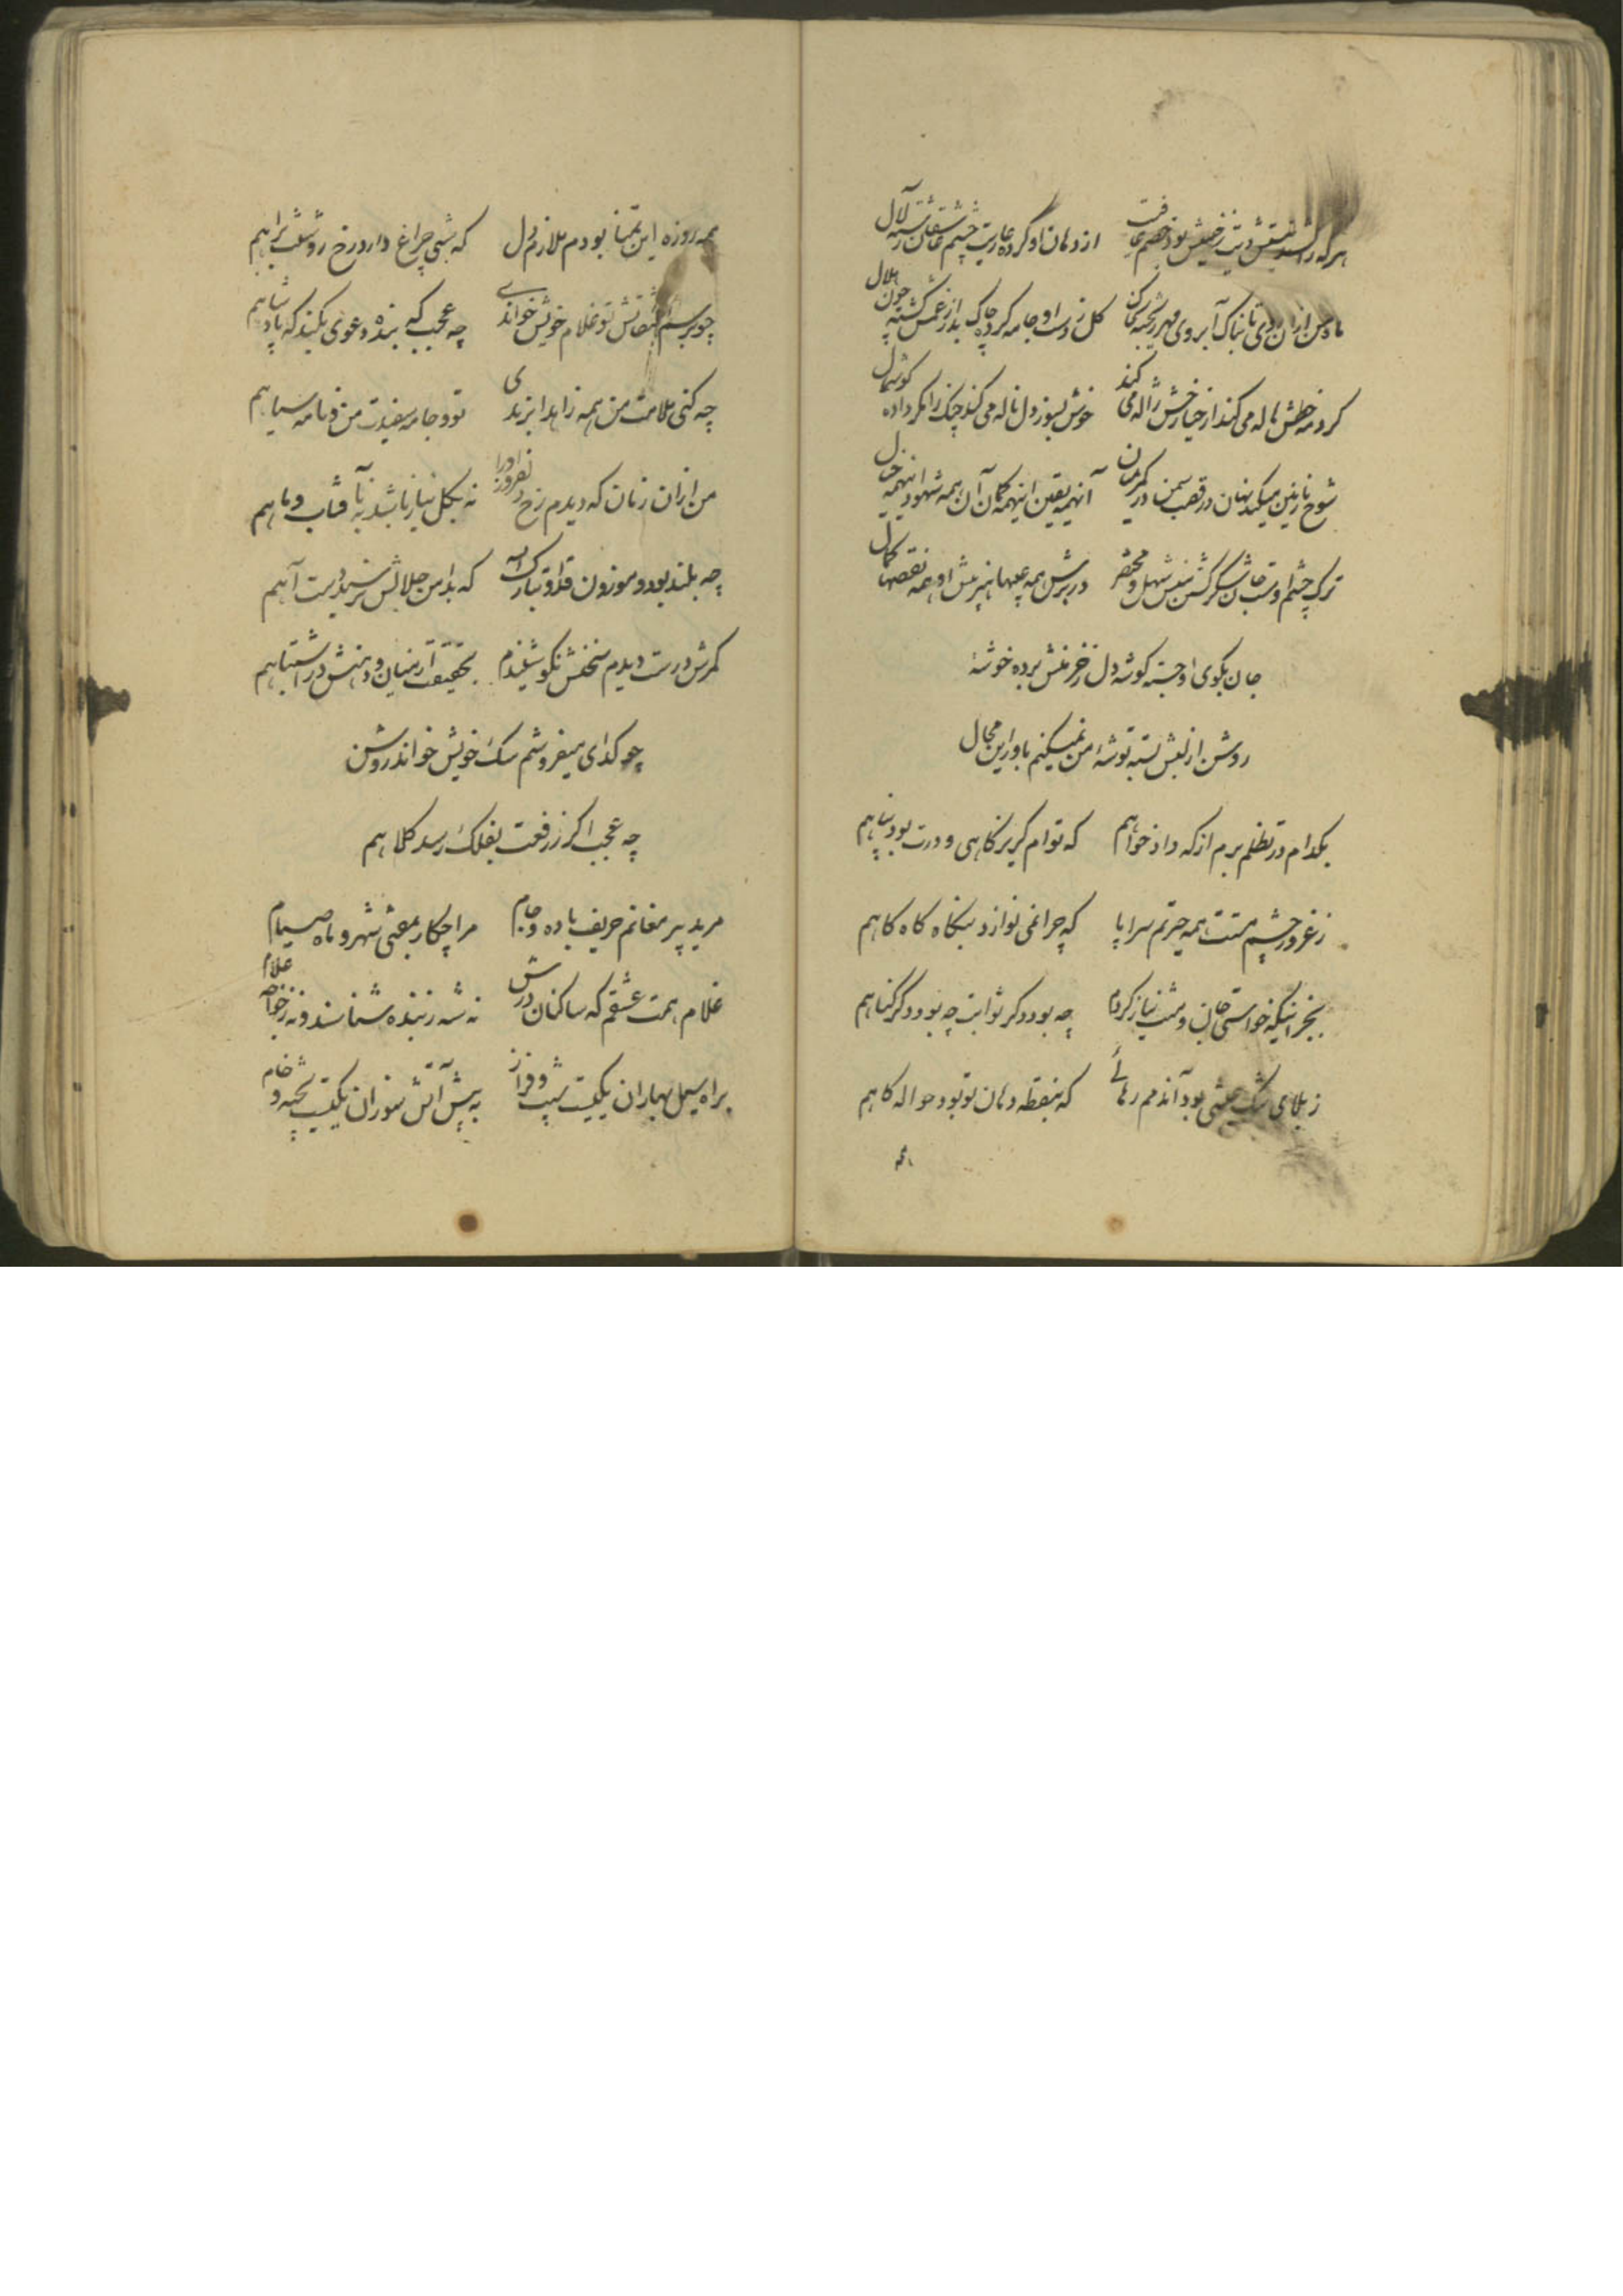 هرکه را شد عشقش دیت ز خویش بود خصم رفت از دهان او کرده عاریت چشم عاشقان لآل
ماه من از آن روی تابناک آبروی مهر ریخته کل ز دست او جامه کرده چاک بدر از غمش کشته چون هلال
کرد مه خطش هاله می کند از حیا رخش ژاله می کند خوش بسوز دل ناله می کند چنک را مکر داده کوشمال
شوخ نازنین میکند نهان در قصب سمن در کمر آنهمه یقین اینهمه کمان آن همه شهود اینهمه خیال
ترک چشم او همه عیبها هنر پیش او همه نقصها کمال
جان بکوی او جسته کوشهٔ دل ز خرمنش برده خوشهٔ
روشن از لبش بسته توشهٔ من نمیکنم باور این مجال
بکدام در تظلم برم از که داد خواهم که توام کریزکاهی و درت بود پناهم
ز غرور چشم مستت همه حیرتم سراپا که چرا نمی نوازد بنکاه کاه کاهم
بجز اینکه خواستی جان و منت نیاز کردم چه بود دکر ثوابت چه بود دکر کناهم
ز بلای عشقی بود آندمم رهائی که بنقطه دهان تو بود حواله کاهم
همه
همه روزه این تمنا بودم ملازم دل که شبی چراغ دارد رخ روشنت براهم
چو بر تو غلام خویش خواندی چه عجب که بنده دعوی بکند که پادشاهم
چه کنی ملامت من همه زاهدا بزندی تو و جامه سفیدت من و نامه سیاهم
من از ان زمان که دیدم رخ او را نه بکل نیاز باشد نه بآفتاب و ماهم
چه بلند بود و موزون قد او تبارک الله که بدامن جلالش نرسید دست آهم
کمرش درست دیدم سخنش نکو شنیدم بحقیقت از میان و دهنش در اشتباهم
چو کدای میفروشم سک خویش خواند روشن
چه عجب اکر ز رفعت بفلک رسد کلاهم
مرید پیر مغانم حریف باده و جام مرا چکار بمفتی شهر و ماه صیام
غلام همت عشقم که ساکنان درش نه شه ز بنده شناسند و نه ز خواجه غلام
براه سیل بهاران یکیست شیب و فراز به پیش آتش سوزان یکیست پخته و خام